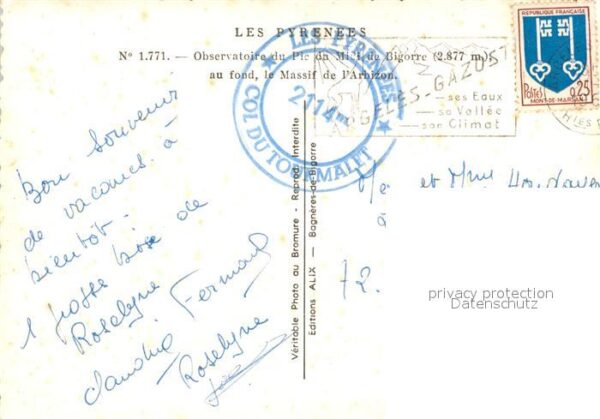 LES PYRENEES
N° 1.771. — Observatoire du Pic du Midi de Bigorre (2.877 m),
au fond, le Massif de l'Arbizon.
LES PYRÉNÉES
2114 m
COL DU TOURMALET
ARGELÈS-GAZOST
ses Eaux
sa Vallée
son Climat
REPUBLIQUE FRANÇAISE
POSTES 0,25
MONT-DE-MARSAN
Bon souvenir
de vacances à
bientôt.
1 grosse bise de
Roselyne Fernand
Claudine
Roselyne
Véritable Photo au Bromure - Reprod. Interdite
Editions ALIX — Bagnères-de-Bigorre
et Mme
à
72.
privacy protection
Datenschutz